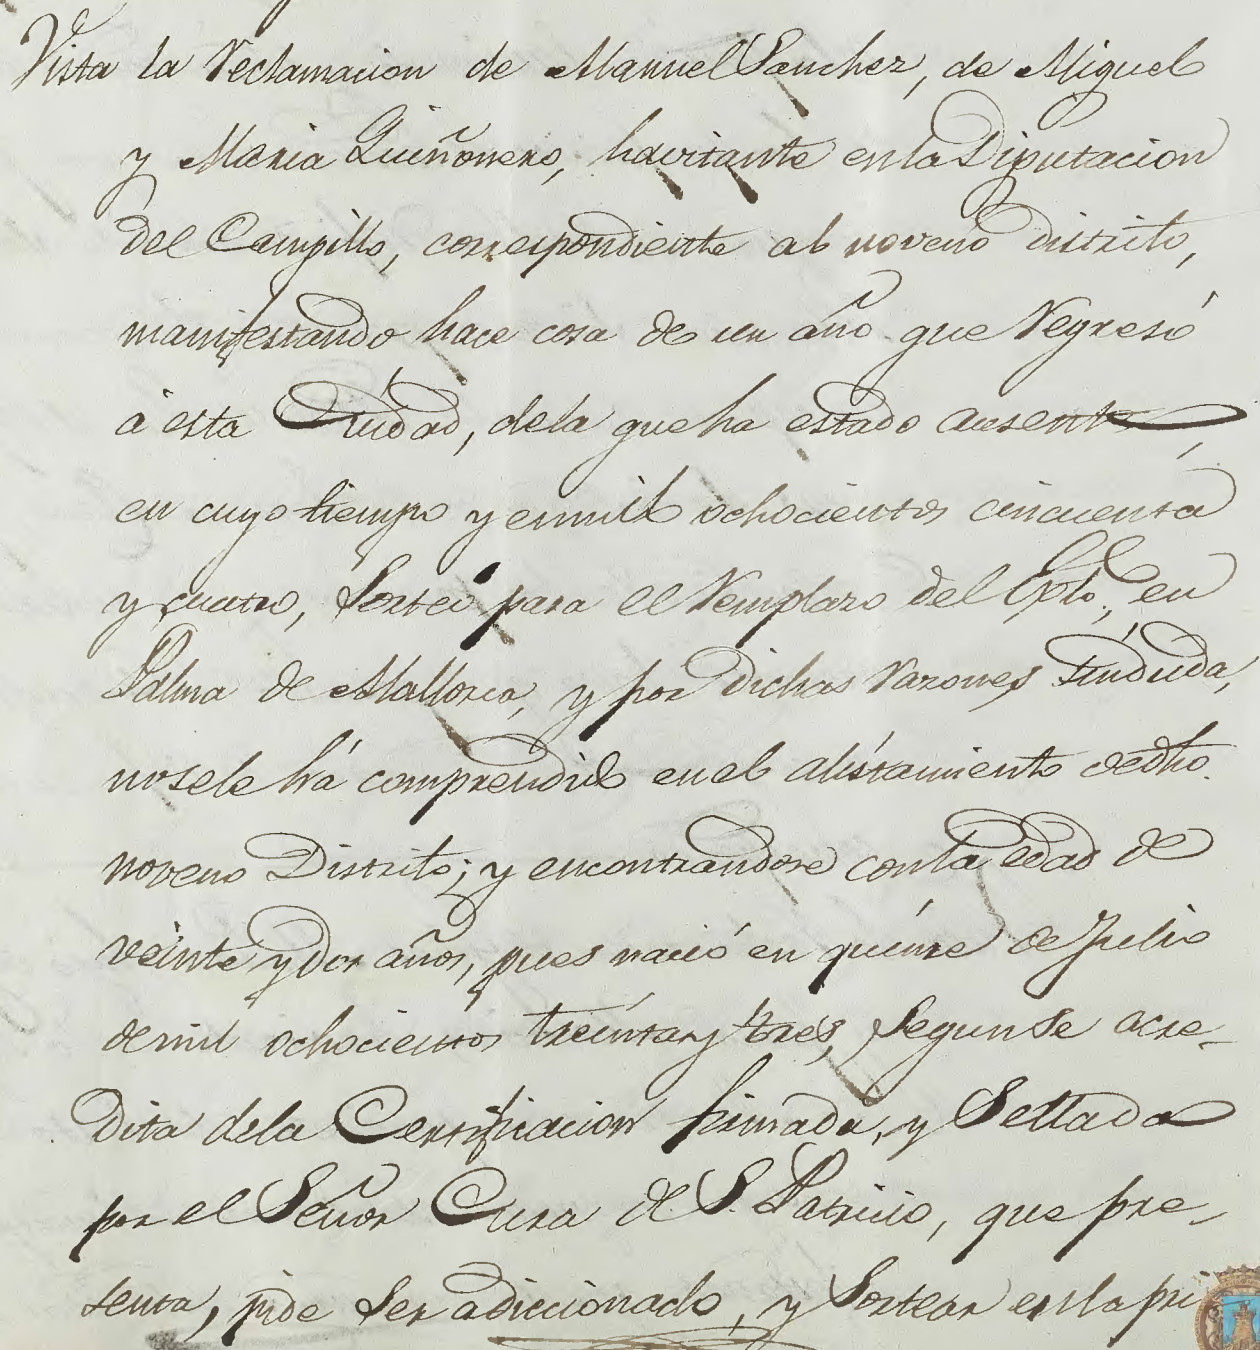 Vista la reclamacion de Manuel Sanchez, de Miguel
y Maria Quiñonero, havitante en la Diputacion
del Campillo, correspondiente al noveno distrito,
manifestando hace cosa de un año que regresó
á esta Ciudad, dela que ha estado ausente,
en cuyo tiempo y enmil ochocientos cincuenta
y cuatro, Sorteó para el remplazo del Exto., en
Palma de Mallorca, y por dichas razones sinduda,
nosele há comprendido en el alistamiento dedho.
noveno Distrito; y encontrandose conla edad de
veinte ydos años, pues nació en quince de Julio
demil ochocientos treinta y tres, Segun Se acre-
dita dela Certificacion firmada, y Sellada
por el Señor Cura de S. Patricio, que pre-
senta, pide Ser adiccionado, y Sortear en la pri